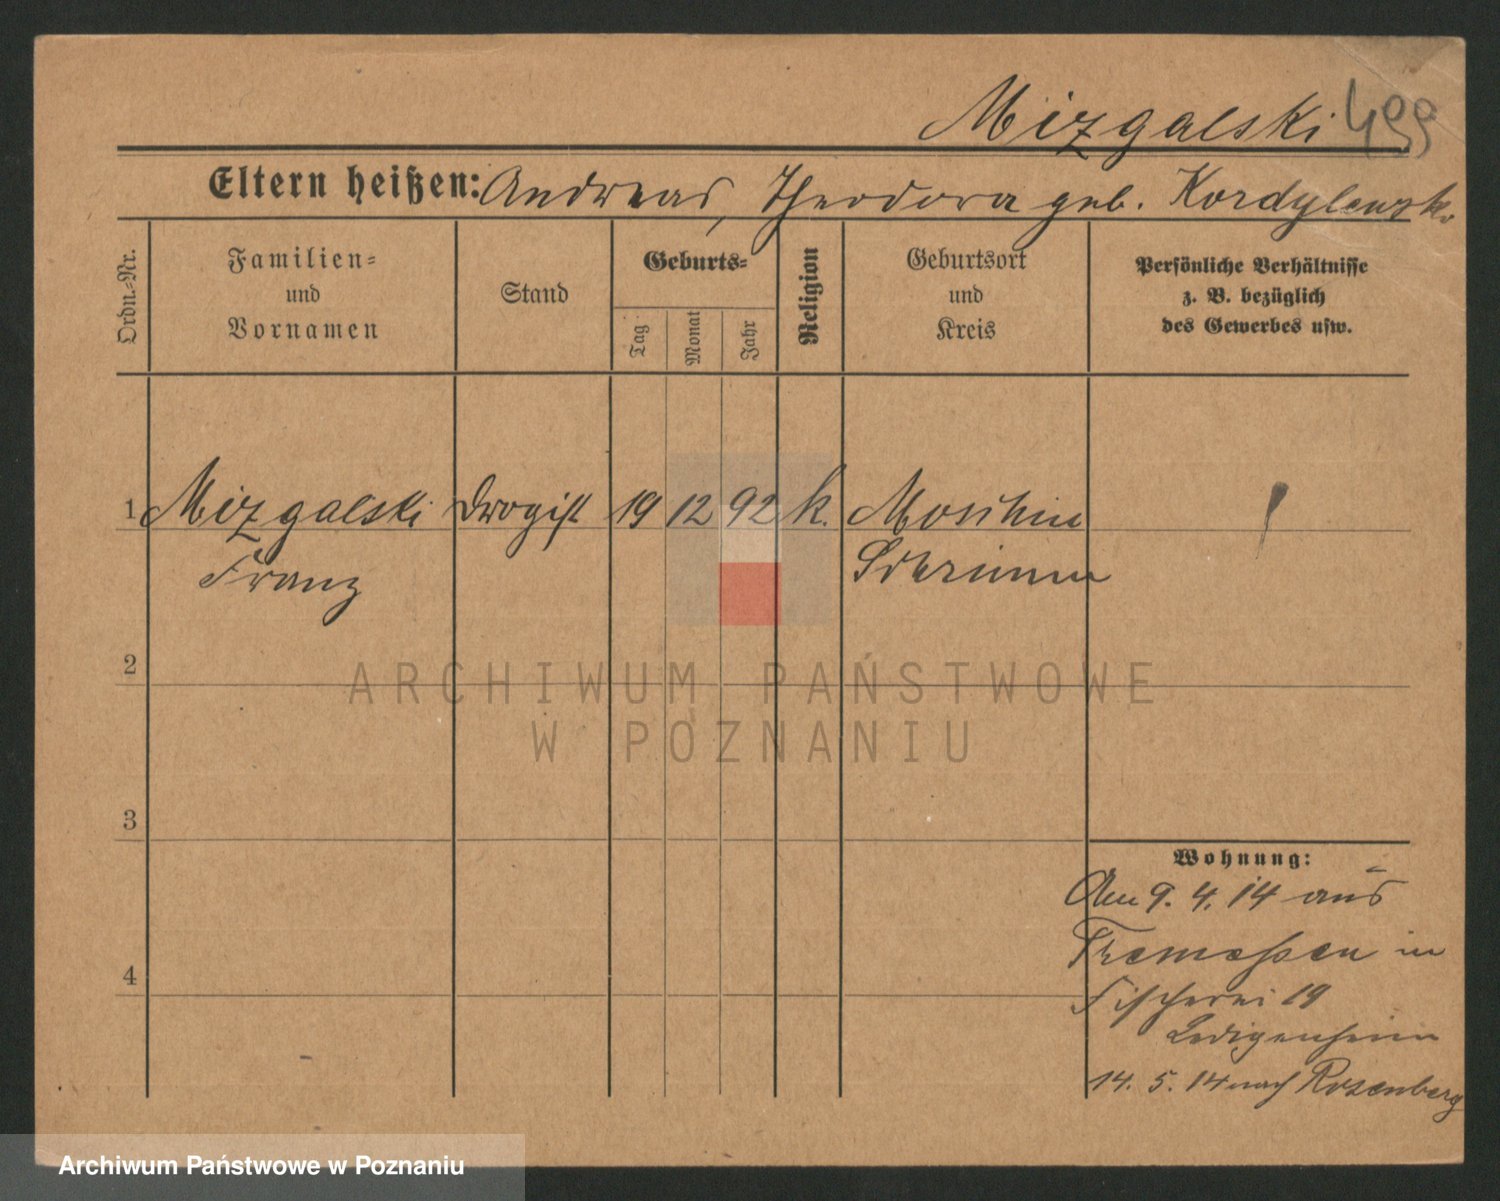 Mizgalski 499
Eltern heißen: Andreas, Theodora geb. Kordylewski
Ordn.-Nr.
Familien-
und
Vornamen
Stand
Geburts-
Tag
Monat
Jahr
Religion
Geburtsort
und
Kreis
Persönliche Verhältnisse
z. B. bezüglich
des Gewerbes usw.
1 Mizgalski Drogist 19 12 92 k. Moschin
Franz Schrimm
2
ARCHIWUM PAŃSTWOWE
W POZNANIU
3
Wohnung:
Am 9. 4. 14 aus
Tremessen in
4
Fischerei 19
Ledigenheim
14. 5. 14 nach Rosenberg
Archiwum Państwowe w Poznaniu